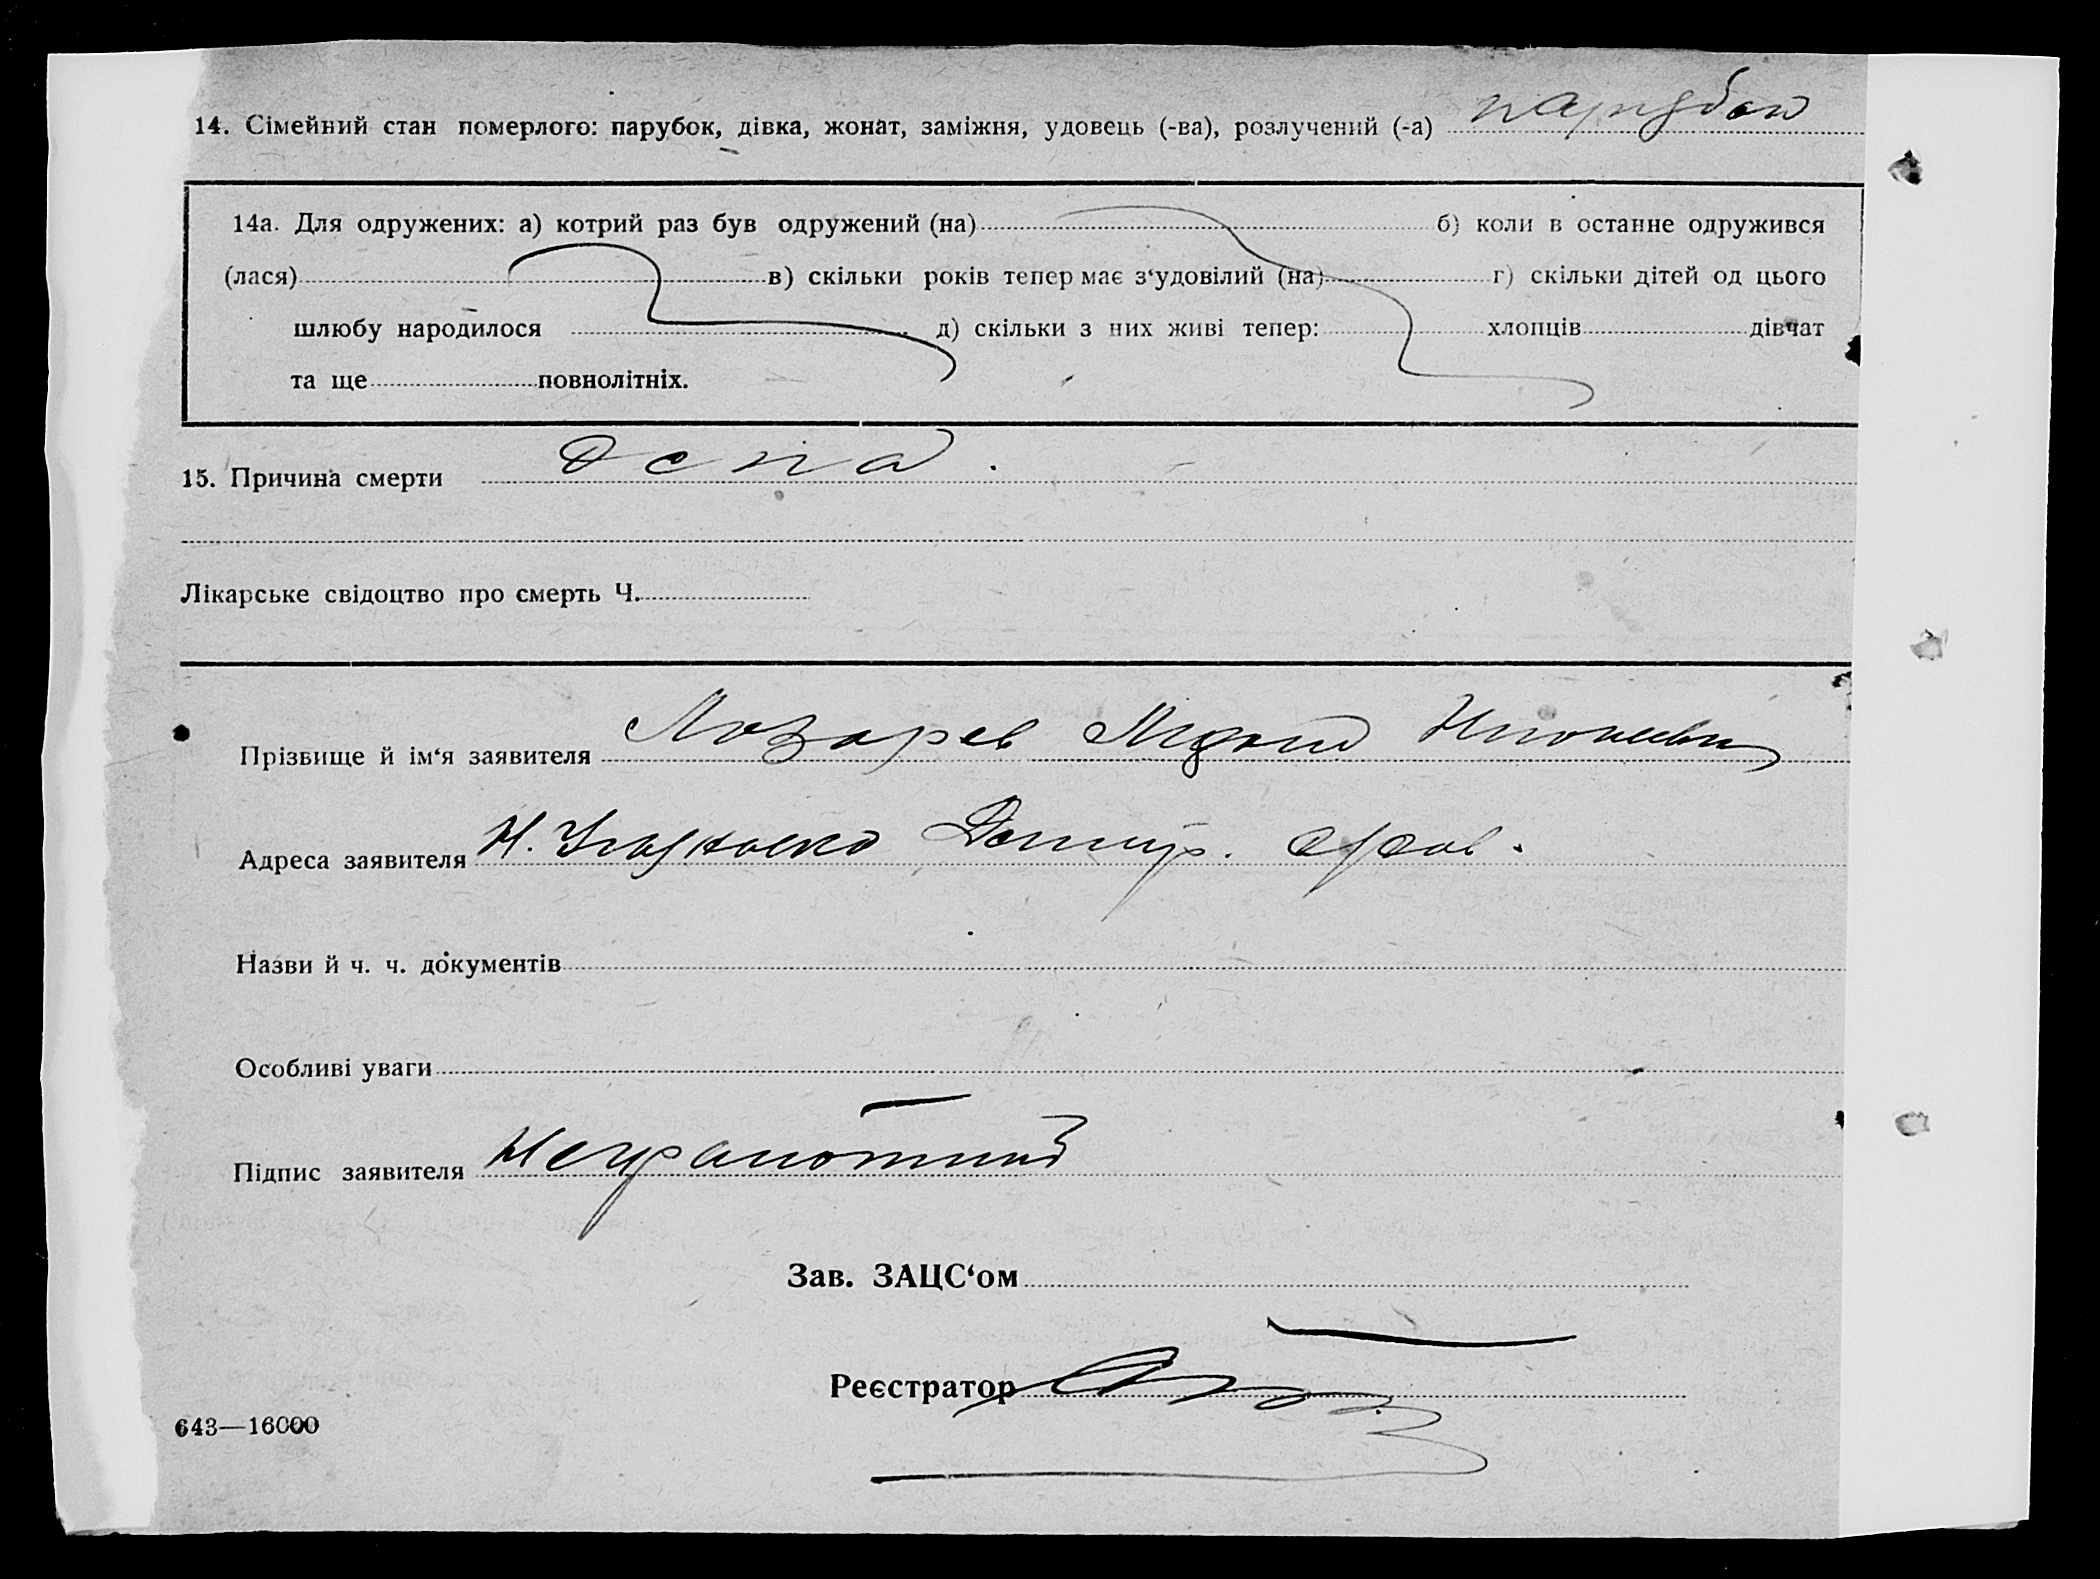 14. Сімейний стан померлого: парубок, дівка, жонат, заміжня, удовець (-ва), розлучений (-а) парубок
14а. Для одружених: а) котрий раз був одружений (на) б) коли в останне одружився
(лася) в) скільки років тепер має з‘удовілий (на) г) скільки дітей од цього
шлюбу народилося д) скільки з них живі тепер: хлопців дівчат
та ще повнолітніх.
15. Причина смерти Оспа.
Лікарське свідоцтво про смерть Ч.
Прізвище й ім‘я заявителя Лозарев
Адреса заявителя Н.
Назви й ч. ч. документів
Особливі уваги
Підпис заявителя Неграмотний
Зав. ЗАЦС‘ом
Реєстратор
643—16000